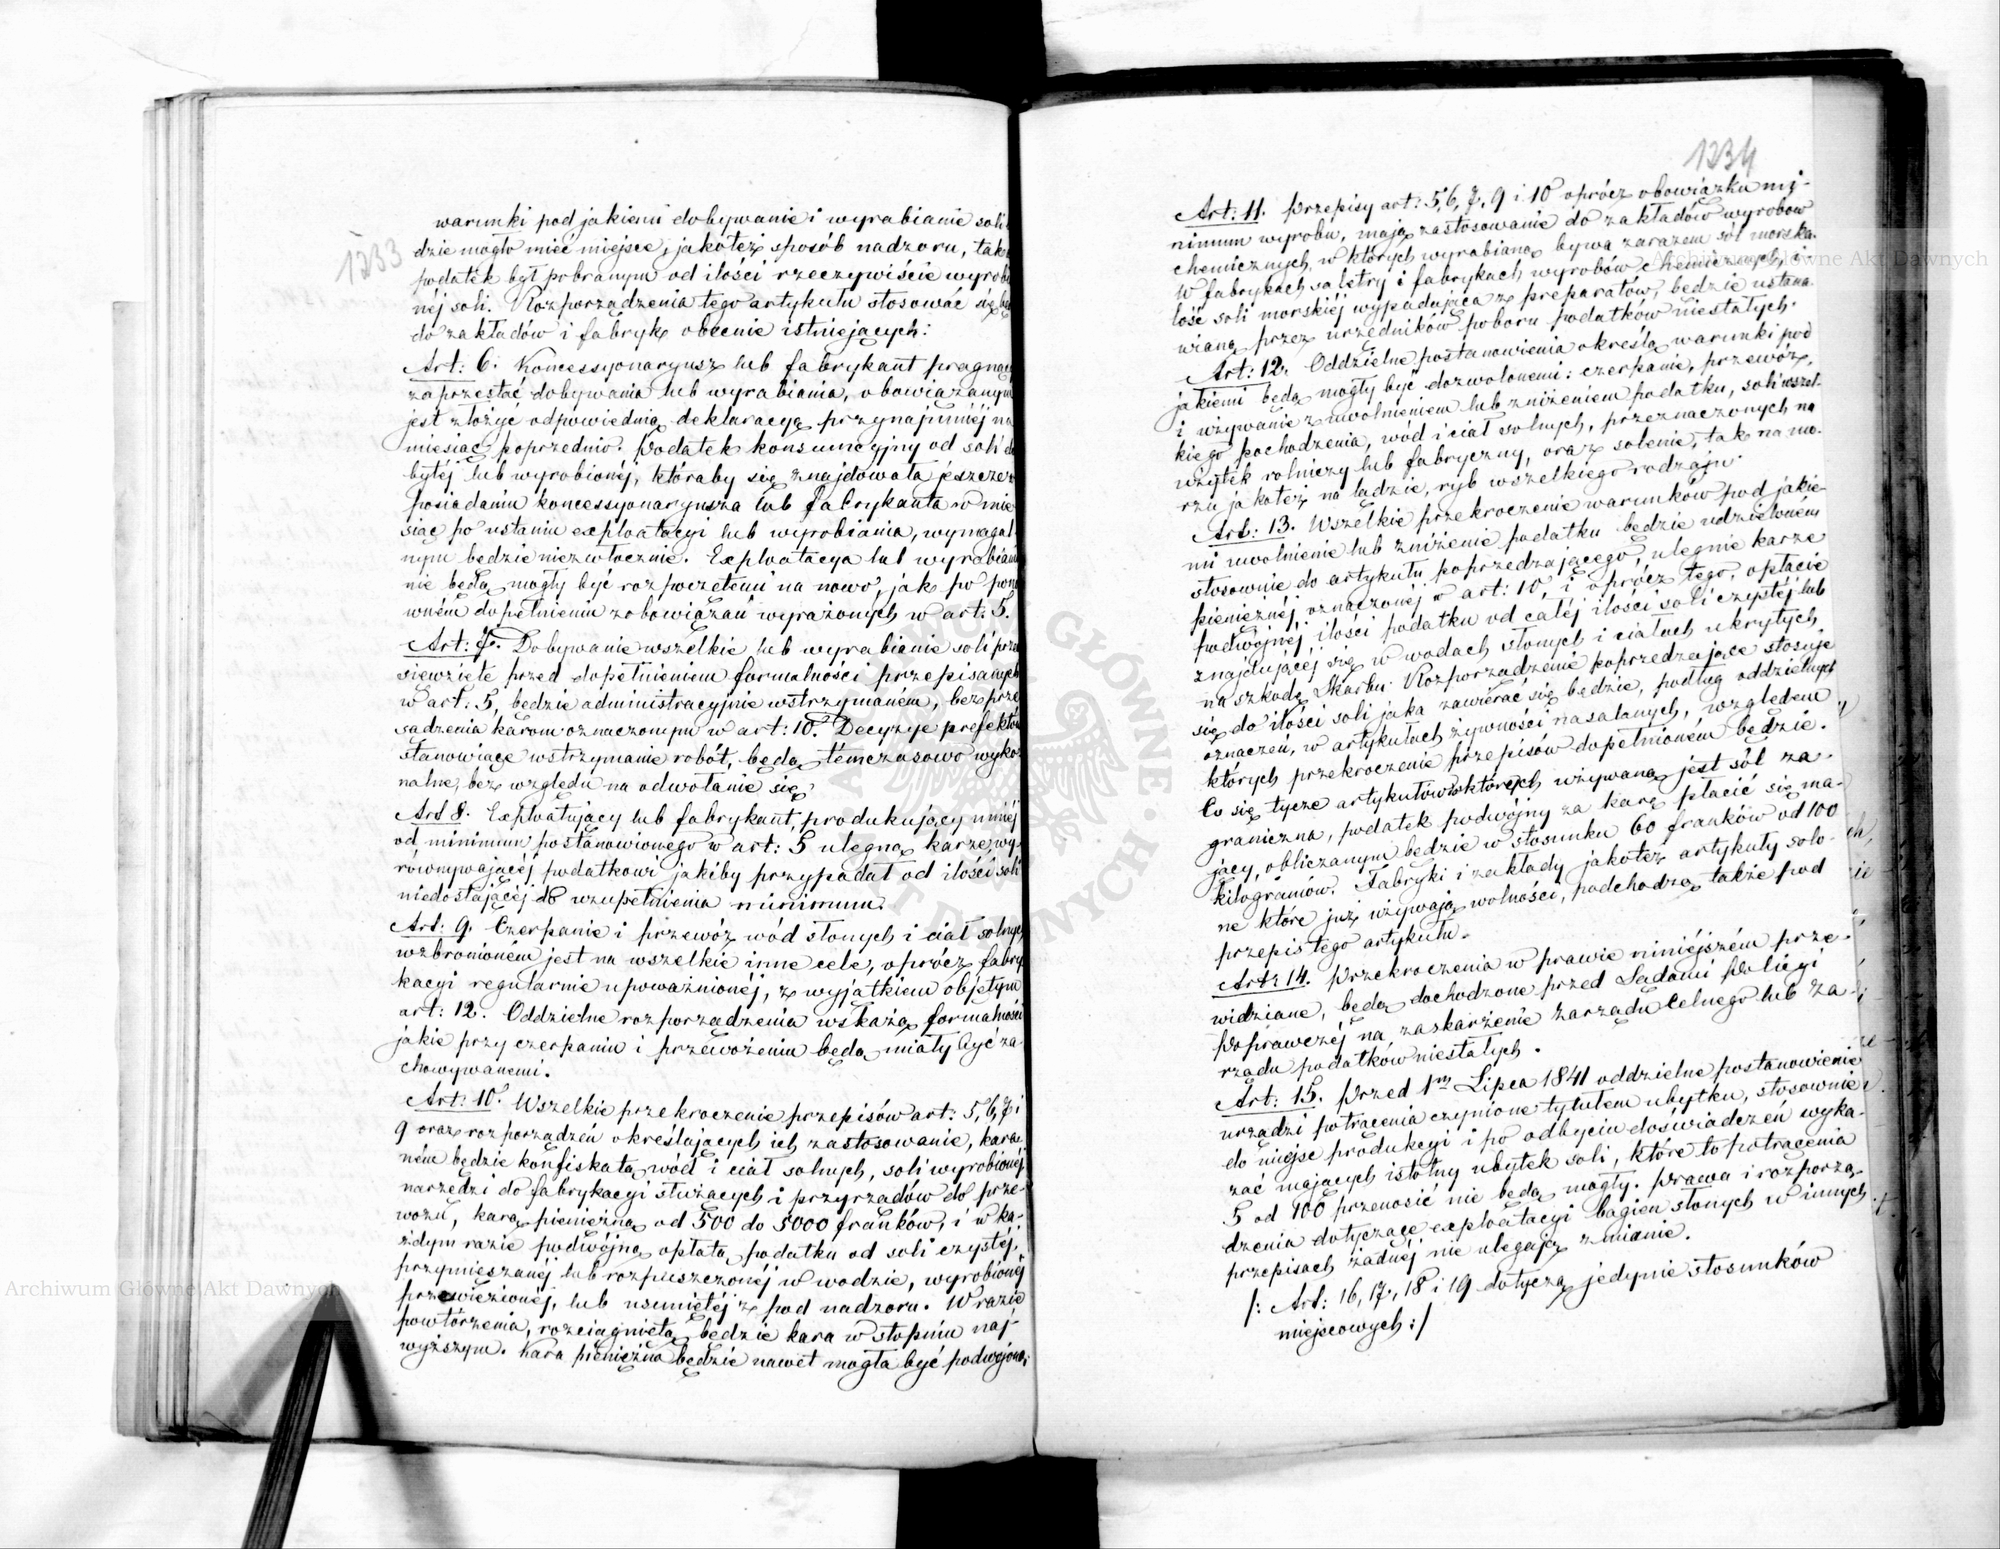 1233
warunki pod jakiemi dobywanie i wyrabianie soli
dzie mogło mieć miejsce, jakoteż sposób nadzoru, tak
podatek był pobranym od ilości rzeczywiście wyrob
néj soli. Rozporządzenia tego artykułu stosować się
do zakładów i fabryk obecnie istniejących:
Art: 6. Koncessyonaryusz lub fabrykant pragną
zaprzestać dobywania lub wyrabiania, obowiązanym
jest złożyć odpowiednią deklaracyą przynajmniéj na
miesiąc poprzednio. Podatek konsumcyjny od soli do
bytéj lub wyrobionéj, któraby się znajdowała jeszcze w
posiadaniu koncessyonaryusza lub fabrykanta w mie
siąc po ustaniu exploatacyi lub wyrobiania, wymagal
nym będzie niezwłocznie. Exploatacya lub wyrabia
nie będą mogły być rozpoczętemi na nowo, jak po pono
wném dopełnieniu zobowiązań wyrażonych w art: 5.
Art: 7. Dobywanie wszelkie lub wyrabianie soli prze
sięwzięte przed dopełnieniem formalności przepisanych
w art: 5, będzie administracyjnie wstrzymaném, bez prze
sądzenia karom oznaczonym w art: 10. Decyzye prefektów
stanowiące wstrzymanie robót, będą témczasowo wyko
nalne, bez względu na odwołanie się.
Art 8. Exploatujący lub fabrykant, produkujący mniéj
od minimum postanowionego w art: 5 ulegną karze, wy-
równywającéj podatkowi jakiby przypadał od ilości soli
niedostającéj do uzupełnienia minimum.
Art: 9. Czerpanie i przewóz wód słonych i ciał solnych
wzbronioném jest na wszelkie inne cele, oprócz fabry
kacyi regularnie upoważnionéj, z wyjątkiem objętym
art: 12. Oddzielne rozporządzenia wskażą formalności
jakie przy czerpaniu i przewożeniu będą miały być za-
chowywanemi.
Art: 10. Wszelkie przekroczenie przepisów art: 5, 6, 7 i
9 oraz rozporządzeń określających ich zastosowanie, kara-
ném będzie konfiskatą wód i ciał solnych, soli wyrobionéj
narzędzi do fabrykacyi służących i przyrządów do prze-
wozu, karą pieniężną od 500 do 5000 franków, i w ka-
żdym razie podwójną opłatą podatku od soli czystéj,
przymieszanéj lub rozpuszczonéj w wodzie, wyrobionéj
przewiezionéj, lub usuniętéj z pod nadzoru. W razie
powtórzenia, rozciągniętą będzie kara w stopniu naj-
wyższym. Kara pieniężna będzie nawet mogła być podwojoną.
1234
Art: 11. Przepisy art: 5, 6, 7, 9 i 10 oprócz obowiązku mi-
nimum wyrobu, mają zastosowanie do zakładów wyrobów
chemicznych, w których wyrabianą bywa zarazem sól morska.
W fabrykach saletry i fabrykach wyrobów chemicznych, i
lość soli morskiéj wypadająca z preparatów, będzie ustana-
wianą przez urzędników poboru podatków niestałych.
Art: 12. Oddzielne postanowienia określą warunki pod
jakiemi będą mogły być dozwolonemi: czerpanie, przewóz,
i używanie z uwolnieniem lub zniżeniem podatku, soli wszel-
kiego pochodzenia, wód i ciał solnych, przeznaczonych na
użytek rolniczy lub fabryczny, oraz solenie, tak na mo-
rzu jakoteż na lądzie, ryb wszelkiego rodzaju.
Art: 13. Wszelkie przekroczenie warunków pod jakie-
mi uwolnienie lub zniżenie podatku będzie udzieloném
stosownie do artykułu poprzedzającego, ulegnie karze
pieniężnéj oznaczonéj w art: 10, i oprócz tego, opłacie
podwójnéj ilości podatku od całéj ilości soli czystéj lub
znajdującéj się w wodach słonych i ciałach ukrytych
na szkodę Skarbu. Rozporządzenie poprzedzające stosuje
się do ilości soli jaka zawierać się będzie, podług oddzielnych
oznaczeń, w artykułach żywności nasalanych, względem
których przekroczenie przepisów dopełnioném będzie.
Co się tycze artykułów w których używaną jest sól za-
graniczna, podatek podwójny za karę płacić się ma-
jący, obliczanym będzie w stosunku 60 franków od 100
kilogramów. Fabryki i zakłady jakoteż artykuły solo-
ne które już używają wolności, podchodzą także pod
przepis tego artykułu.
Art: 14. Przekroczenia w prawie niniéjszém prze-
widziane, będą dochodzone przed Sądami Policyi
Poprawczéj na zaskarżenie Zarządu Celnego lub Za-
rządu podatków niestałych.
Art: 15. Przed 1m Lipca 1841 oddzielne postanowienie
urządzi potrącenia czynione tytułem ubytku, stosownie
do miejsc produkcyi i po odbyciu doświadczeń wyka-
zać mających istotny ubytek soli, które to potrącenia
5 od 100 przenosić nie będą mogły. Prawa i rozporzą-
dzenia dotyczące exploatacyi bagien słonych w innych
przepisach żadnéj nie ulegają zmianie.
/: Art: 16, 17, 18 i 19 dotyczą jedynie stosunków
miejscowych :/
Archiwum Główne Akt Dawnych
Archiwum Główne Akt Dawnych